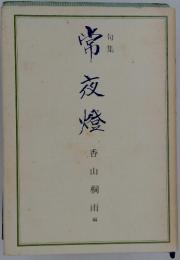 句集
常夜燈
香山桐雨 編